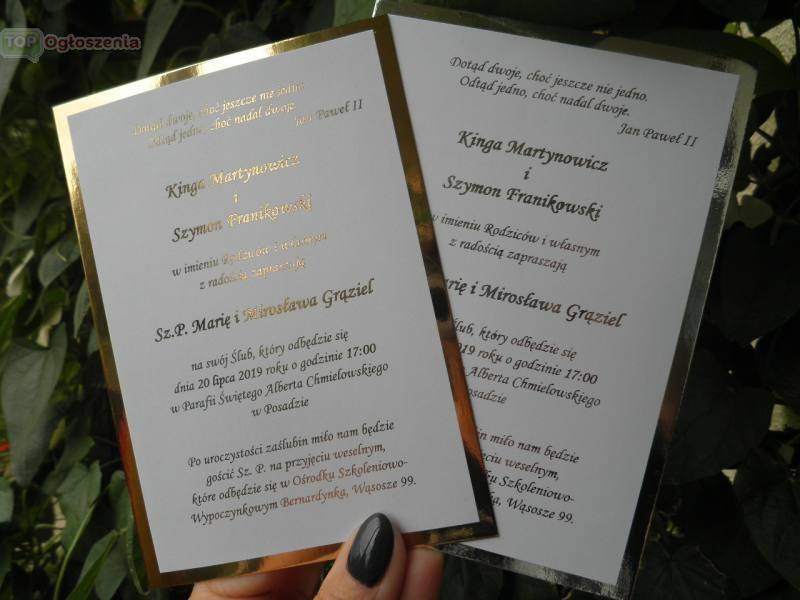 TOP Ogłoszenia
Dotąd dwoje, choć jeszcze nie jedno.
Odtąd jedno, choć nadal dwoje.
Jan Paweł II
Kinga Martynowicz
i
Szymon Franikowski
w imieniu Rodziców i własnym
z radością zapraszają
Sz.P. Marię i Mirosława Grąziel
na swój Ślub, który odbędzie się
dnia 20 lipca 2019 roku o godzinie 17:00
w Parafii Świętego Alberta Chmielowskiego
w Posadzie
Po uroczystości zaślubin miło nam będzie
gościć Sz. P. na przyjęciu weselnym,
które odbędzie się w Ośrodku Szkoleniowo-
Wypoczynkowym Bernardynka, Wąsosze 99.
Dotąd dwoje, choć jeszcze nie jedno.
Odtąd jedno, choć nadal dwoje.
Jan Paweł II
Kinga Martynowicz
i
Szymon Franikowski
w imieniu Rodziców i własnym
z radością zapraszają
arię i Mirosława Grąziel
Ślub, który odbędzie się
2019 roku o godzinie 17:00
Alberta Chmielowskiego
Posadzie
bin miło nam będzie
yjęciu weselnym,
Szkoleniowo-
ka, Wąsosze 99.